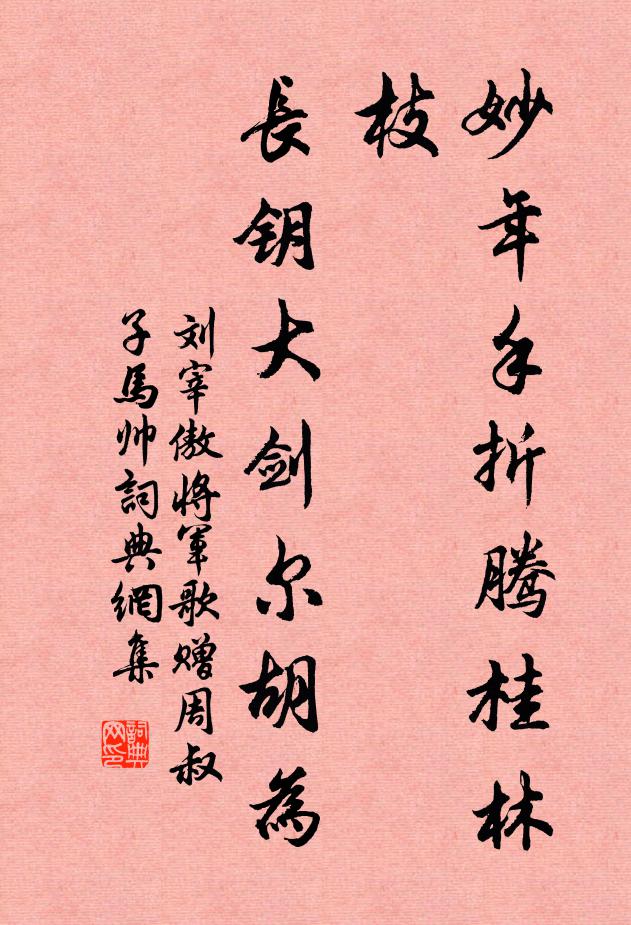 妙年手折腾桂林
枝
長钥大剑尔胡為
刘宰傲将軍歌赠周叔
子馬帅詞典網集
詞典
网印